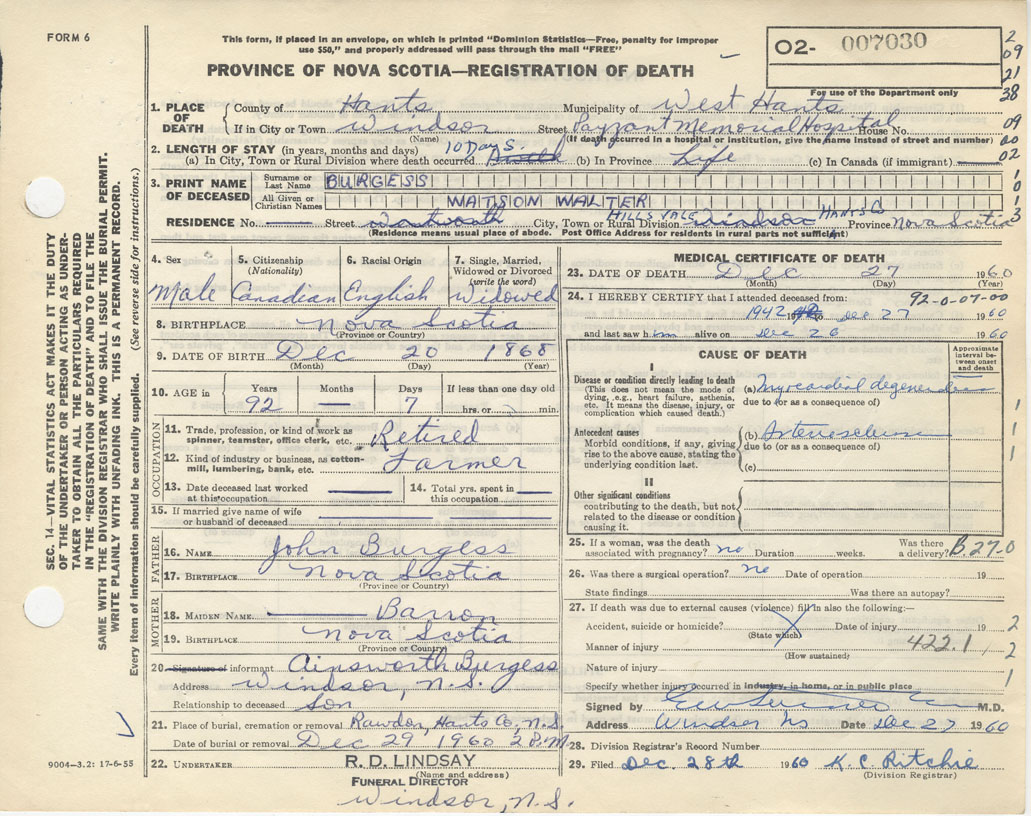 FORM 6
This form, if placed in an envelope, on which is printed "Dominion Statistics—Free, penalty for improper
use $50," and properly addressed will pass through the mail "FREE"
PROVINCE OF NOVA SCOTIA—REGISTRATION OF DEATH
02- 007030
For use of the Department only
2
09
21
38
09
00
02
1. PLACE OF DEATH
County of Hants Municipality of West Hants
If in City or Town Windsor Street Payzant Memorial Hospital House No.
(Name) (If death occurred in a hospital or institution, give the name instead of street and number)
2. LENGTH OF STAY (in years, months and days) 10 Days.
(a) In City, Town or Rural Division where death occurred (b) In Province Life (c) In Canada (if immigrant)
3. PRINT NAME OF DECEASED
Surname or Last Name BURGESS
All Given or Christian Names WATSON WALTER
RESIDENCE No. Street Wentworth City, Town or Rural Division HILLSVALE Windsor HANTS Co Province Nova Scotia
(Residence means usual place of abode. Post Office Address for residents in rural parts not sufficient)
4. Sex Male
5. Citizenship (Nationality) Canadian
6. Racial Origin English
7. Single, Married, Widowed or Divorced (write the word) Widowed
8. BIRTHPLACE Nova Scotia
(Province or Country)
9. DATE OF BIRTH Dec 20 1868
(Month) (Day) (Year)
10. AGE in Years 92 Months — Days 7 If less than one day old hrs. or min.
OCCUPATION
11. Trade, profession, or kind of work as spinner, teamster, office clerk, etc. Retired
12. Kind of industry or business, as cotton-mill, lumbering, bank, etc. Farmer
13. Date deceased last worked at this occupation
14. Total yrs. spent in this occupation
15. If married give name of wife or husband of deceased
FATHER
16. NAME John Burgess
17. BIRTHPLACE Nova Scotia
(Province or Country)
MOTHER
18. MAIDEN NAME Barron
19. BIRTHPLACE Nova Scotia
(Province or Country)
20. Signature of informant Ainsworth Burgess
Address Windsor, N.S.
Relationship to deceased Son
21. Place of burial, cremation or removal Rawdon, Hants Co, N.S.
Date of burial or removal Dec 29 1960
22. UNDERTAKER R. D. LINDSAY
(Name and address)
FUNERAL DIRECTOR
Windsor, N.S.
MEDICAL CERTIFICATE OF DEATH
23. DATE OF DEATH Dec 27 1960
(Month) (Day)
92-0-07-00
24. I HEREBY CERTIFY that I attended deceased from:
1942 Dec 27 1960
and last saw him alive on Dec 26 1960
CAUSE OF DEATH
Approximate interval between onset and death
I
Disease or condition directly leading to death
(This does not mean the mode of dying, e.g., heart failure, asthenia, etc. It means the disease, injury, or complication which caused death.)
(a) Myocardial degeneration
due to (or as a consequence of)
Antecedent causes
Morbid conditions, if any, giving rise to the above cause, stating the underlying condition last.
(b) Arteriosclerosis
due to (or as a consequence of)
(c)
II
Other significant conditions
contributing to the death, but not related to the disease or condition causing it.
25. If a woman, was the death associated with pregnancy? no Duration weeks. Was there a delivery? B.27.0
26. Was there a surgical operation? no Date of operation 19
State findings Was there an autopsy?
27. If death was due to external causes (violence) fill in also the following:—
Accident, suicide or homicide? Date of injury 19
(State which)
Manner of injury 422.1
(How sustained)
Nature of injury
Specify whether injury occurred in industry, in home, or in public place
Signed by M.D.
Address Windsor NS Date Dec 27 1960
28. Division Registrar's Record Number
29. Filed Dec. 28th 1960 K. C. Ritchie
(Division Registrar)
SEC. 14—VITAL STATISTICS ACT MAKES IT THE DUTY
OF THE UNDERTAKER OR PERSON ACTING AS UNDER-
TAKER TO OBTAIN ALL THE PARTICULARS REQUIRED
IN THE "REGISTRATION OF DEATH" AND TO FILE THE
SAME WITH THE DIVISION REGISTRAR WHO SHALL ISSUE THE BURIAL PERMIT.
WRITE PLAINLY WITH UNFADING INK. THIS IS A PERMANENT RECORD.
Every item of information should be carefully supplied. (See reverse side for instructions.)
9004—3.2: 17-6-55